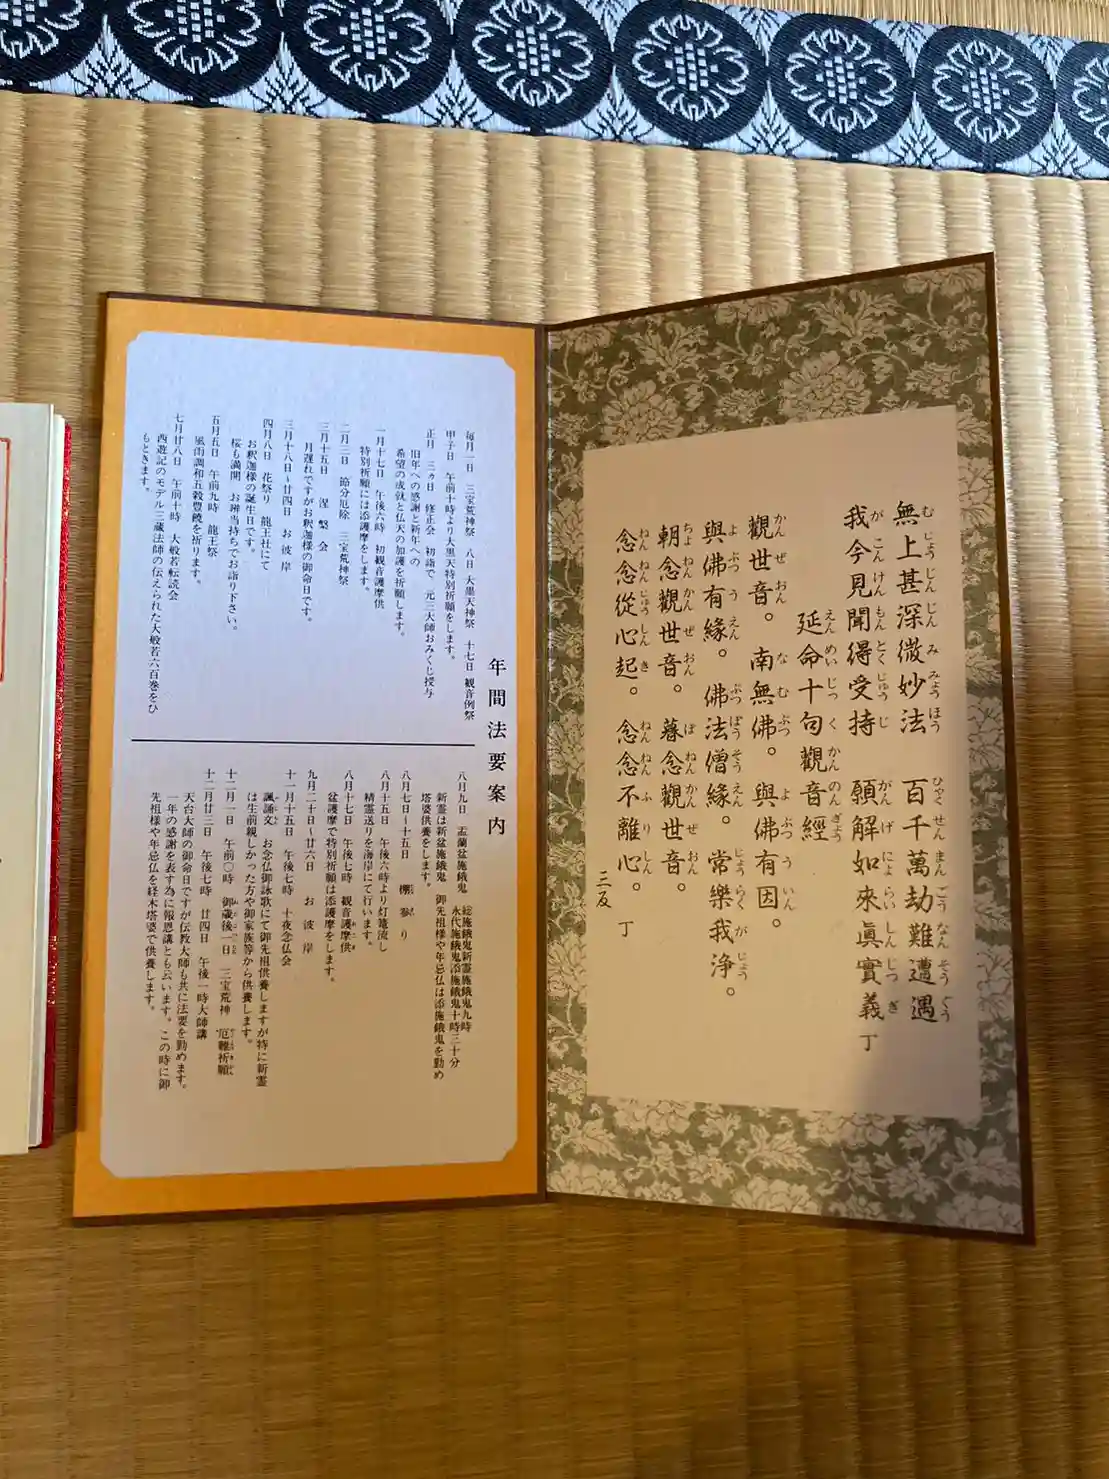 無上甚深微妙法　百千萬劫難遭遇
むじょうじんじんみみょうほう　ひゃくせんまんごうなんそうぐう
我今見聞得受持　願解如來眞實義　丁
がこんけんもんとくじゅうじ　がんげにょらいしんじつぎ
延命十句觀音經
えんめいじっくかんのんぎょう
觀世音。　南無佛。　與佛有因。
かんぜおん　なむぶつ　よぶつういん
與佛有緣。　佛法僧緣。　常樂我淨。
よぶつうえん　ぶっぽうそうえん　じょうらくがじょう
朝念觀世音。　暮念觀世音。
ちょねんかんぜおん　ぼねんかんぜおん
念念從心起。　念念不離心。　丁
ねんねんじゅうしんき　ねんねんふりしん
三反
年間法要案内
毎月一日　三宝荒神祭　八日　大黒天神祭　十七日　観音例祭
甲子日　午前十時より大黒天特別祈願をします。
正月　三ヵ日　修正会　初詣で　元三大師おみくじ授与
旧年への感謝と新年への
希望の成就と仏天の加護を祈願します。
一月十七日　午後六時　初観音護摩供
特別祈願には添護摩をします。
二月三日　節分厄除　三宝荒神祭
三月十五日　涅槃会
月遅れですがお釈迦様の御命日です。
三月十八日〜廿四日　お彼岸
四月八日　花祭り　龍王社にて
お釈迦様の誕生日です。
桜も満開　お弁当持ちでお詣り下さい。
五月五日　午前九時　龍王祭
風雨調和五穀豊饒を祈ります。
七月廿八日　午前十時　大般若転読会
西遊記のモデル三蔵法師の伝えられた大般若六百巻をひ
もときます。
八月九日　盂蘭盆施餓鬼　総施餓鬼新霊施餓鬼九時
永代施餓鬼添施餓鬼十時三十分
新霊は新盆施餓鬼　御先祖様や年忌仏は添施餓鬼を勤め
塔婆供養をします。
八月七日〜十五日　棚参り
八月十五日　午後六時より灯籠流し
精霊送りを海岸にて行います。
八月十七日　午後七時　観音護摩供
盆護摩で特別祈願は添護摩をします。
九月二十日〜廿六日　お彼岸
十一月十五日　午後七時　十夜念仏会
諷誦文　お念仏御詠歌にて御先祖供養しますが特に新霊
は生前親しかった方や御家族等から供養します。
十二月一日　午前〇時　御歳後一日　三宝荒神　厄難祈願
十二月廿三日　午後七時　廿四日　午後一時大師講
天台大師の御命日ですが伝教大師も共に法要を勤めます。
一年の感謝を表す為に報恩講とも云います。この時に御
先祖様や年忌仏を経木塔婆で供養します。